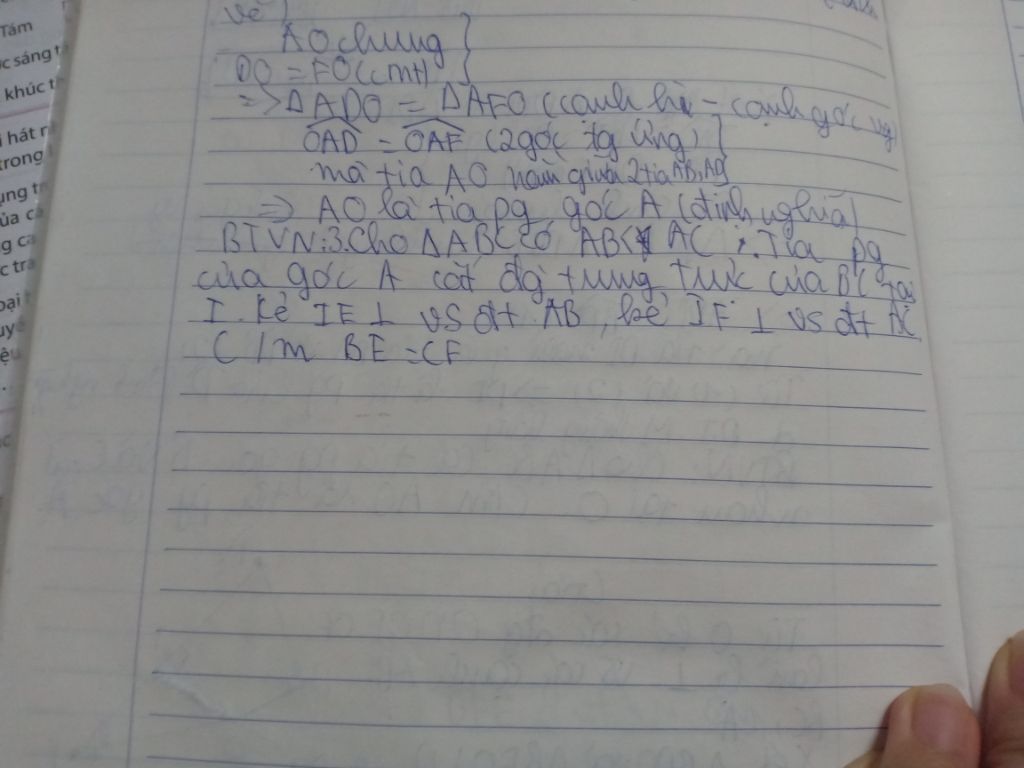 Tám
sáng t
khúc t
hát n
trong
ung tr
ủa cá
g ca
c tra
oại t
uyê
ệu
vẽ }
AO chung }
DO = FO (cmt) }
=> ΔADO = ΔAFO (cạnh hù - cạnh góc vg)
OAD = OAF (2 góc tg ứng) }
mà tia AO nằm giữa 2 tia AB, AC }
=> AO là tia pg góc A (định nghĩa)
BTVN: 3. Cho ΔABC có AB < AC ; Tia pg
của góc A cắt đg trung trực của BC tại
I. Kẻ IE ⊥ vs đt AB, kẻ IF ⊥ vs đt AC
C/m BE = CF